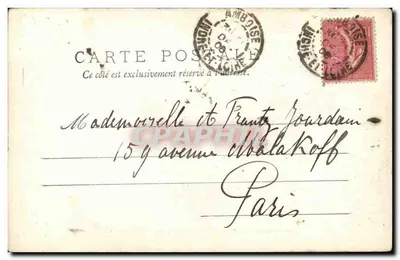 AMBOISE
INDRE-ET-LOIRE
AMBOISE
INDRE-ET-LOIRE
CARTE POSTALE
Ce côté est exclusivement réservé à l'adresse.
Mademoiselle et Frantz Jourdain
CPAPHIL
159 avenue Malakoff
Paris